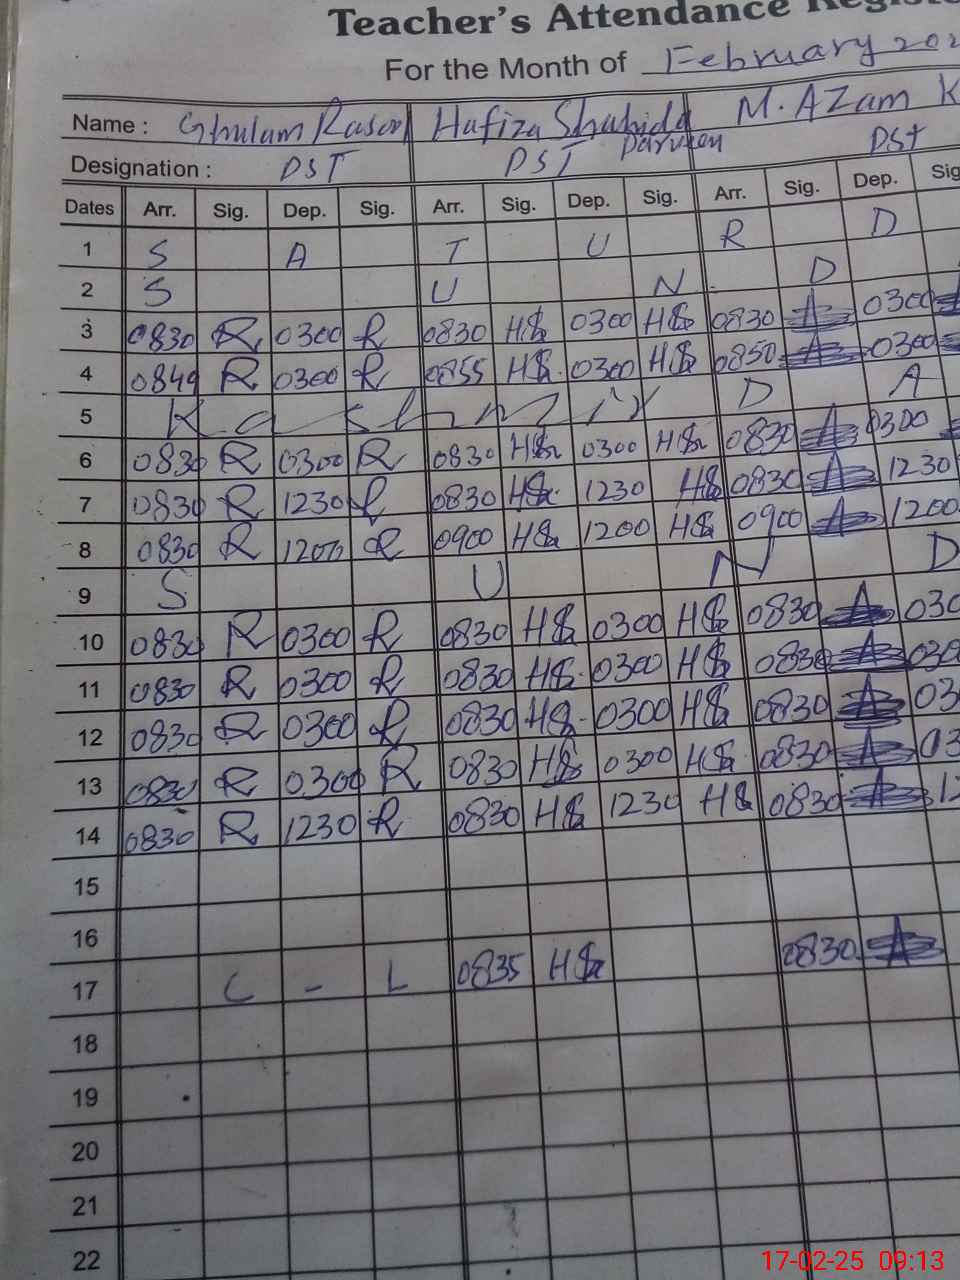 Teacher's Attendance Regist
For the Month of February 202
Name : Ghulam Rasool Hafiza Shahida Parveen M. Azam K
Designation : PST PST PST
Dates Arr. Sig. Dep. Sig. Arr. Sig. Dep. Sig. Arr. Sig. Dep. Sig
1 S A T U R D
2 S U N D
3 0830 R 0300 R 0830 HS 0300 HS 0830 A 0300
4 0849 R 0300 R 0855 HS 0300 HS 0850 A 0300
5 Kashmir D A
6 0830 R 0300 R 0830 HS 0300 HS 0830 A 0300
7 0830 R 1230 R 0830 HS 1230 HS 0830 A 1230
8 0830 R 1200 R 0900 HS 1200 HS 0900 A 1200
9 S U N D
10 0830 R 0300 R 0830 HS 0300 HS 0830 A 030
11 0830 R 0300 R 0830 HS 0300 HS 0830 A 030
12 0830 R 0300 R 0830 HS 0300 HS 0830 A 03
13 0830 R 0300 R 0830 HS 0300 HS 0830 A 03
14 0830 R 1230 R 0830 HS 1230 HS 0830 A 12
15
16
17 C - L 0835 HS 0830 A
18
19
20
21
22
17-02-25 09:13